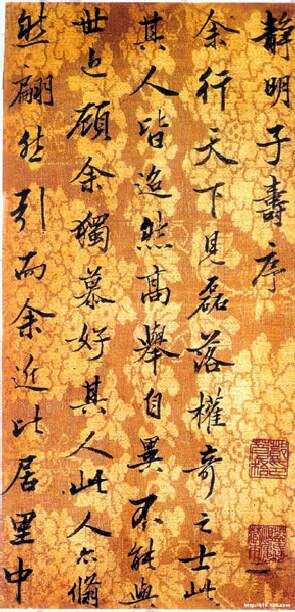 靜明子壽序
余行天下見磊落權奇之士此
其人皆然高舉自異不能與
世顧余獨慕好其人此人亦翛
然翩然引而余近比居里中